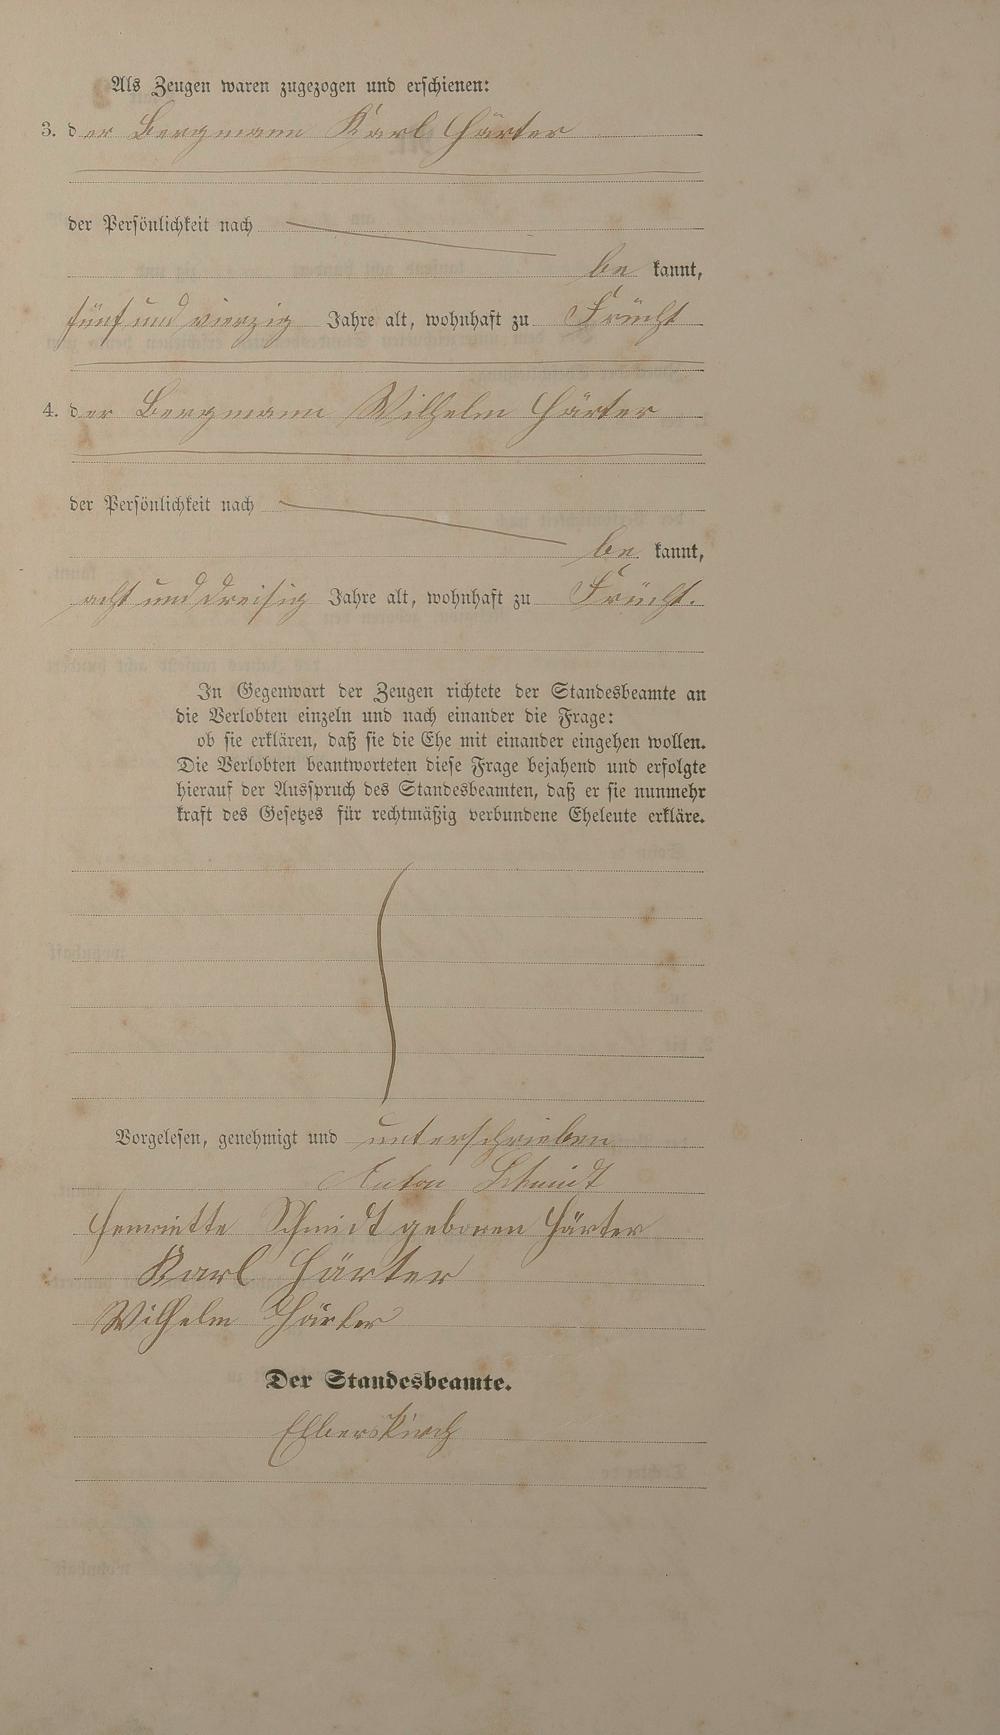 Als Zeugen waren zugezogen und erschienen:
3. der Bergmann Karl Härter
der Persönlichkeit nach
be kannt,
fünf und vierzig Jahre alt, wohnhaft zu Frücht
4. der Bergmann Wilhelm Härter
der Persönlichkeit nach
be kannt,
acht und dreisig Jahre alt, wohnhaft zu Frücht.
In Gegenwart der Zeugen richtete der Standesbeamte an
die Verlobten einzeln und nach einander die Frage:
ob sie erklären, daß sie die Ehe mit einander eingehen wollen.
Die Verlobten beantworteten diese Frage bejahend und erfolgte
hierauf der Ausspruch des Standesbeamten, daß er sie nunmehr
kraft des Gesetzes für rechtmäßig verbundene Eheleute erkläre.
Vorgelesen, genehmigt und unterschrieben
Anton Schmidt
Henriette Schmidt geboren Härter
Karl Härter
Wilhelm Härter
Der Standesbeamte.
Elberskirch